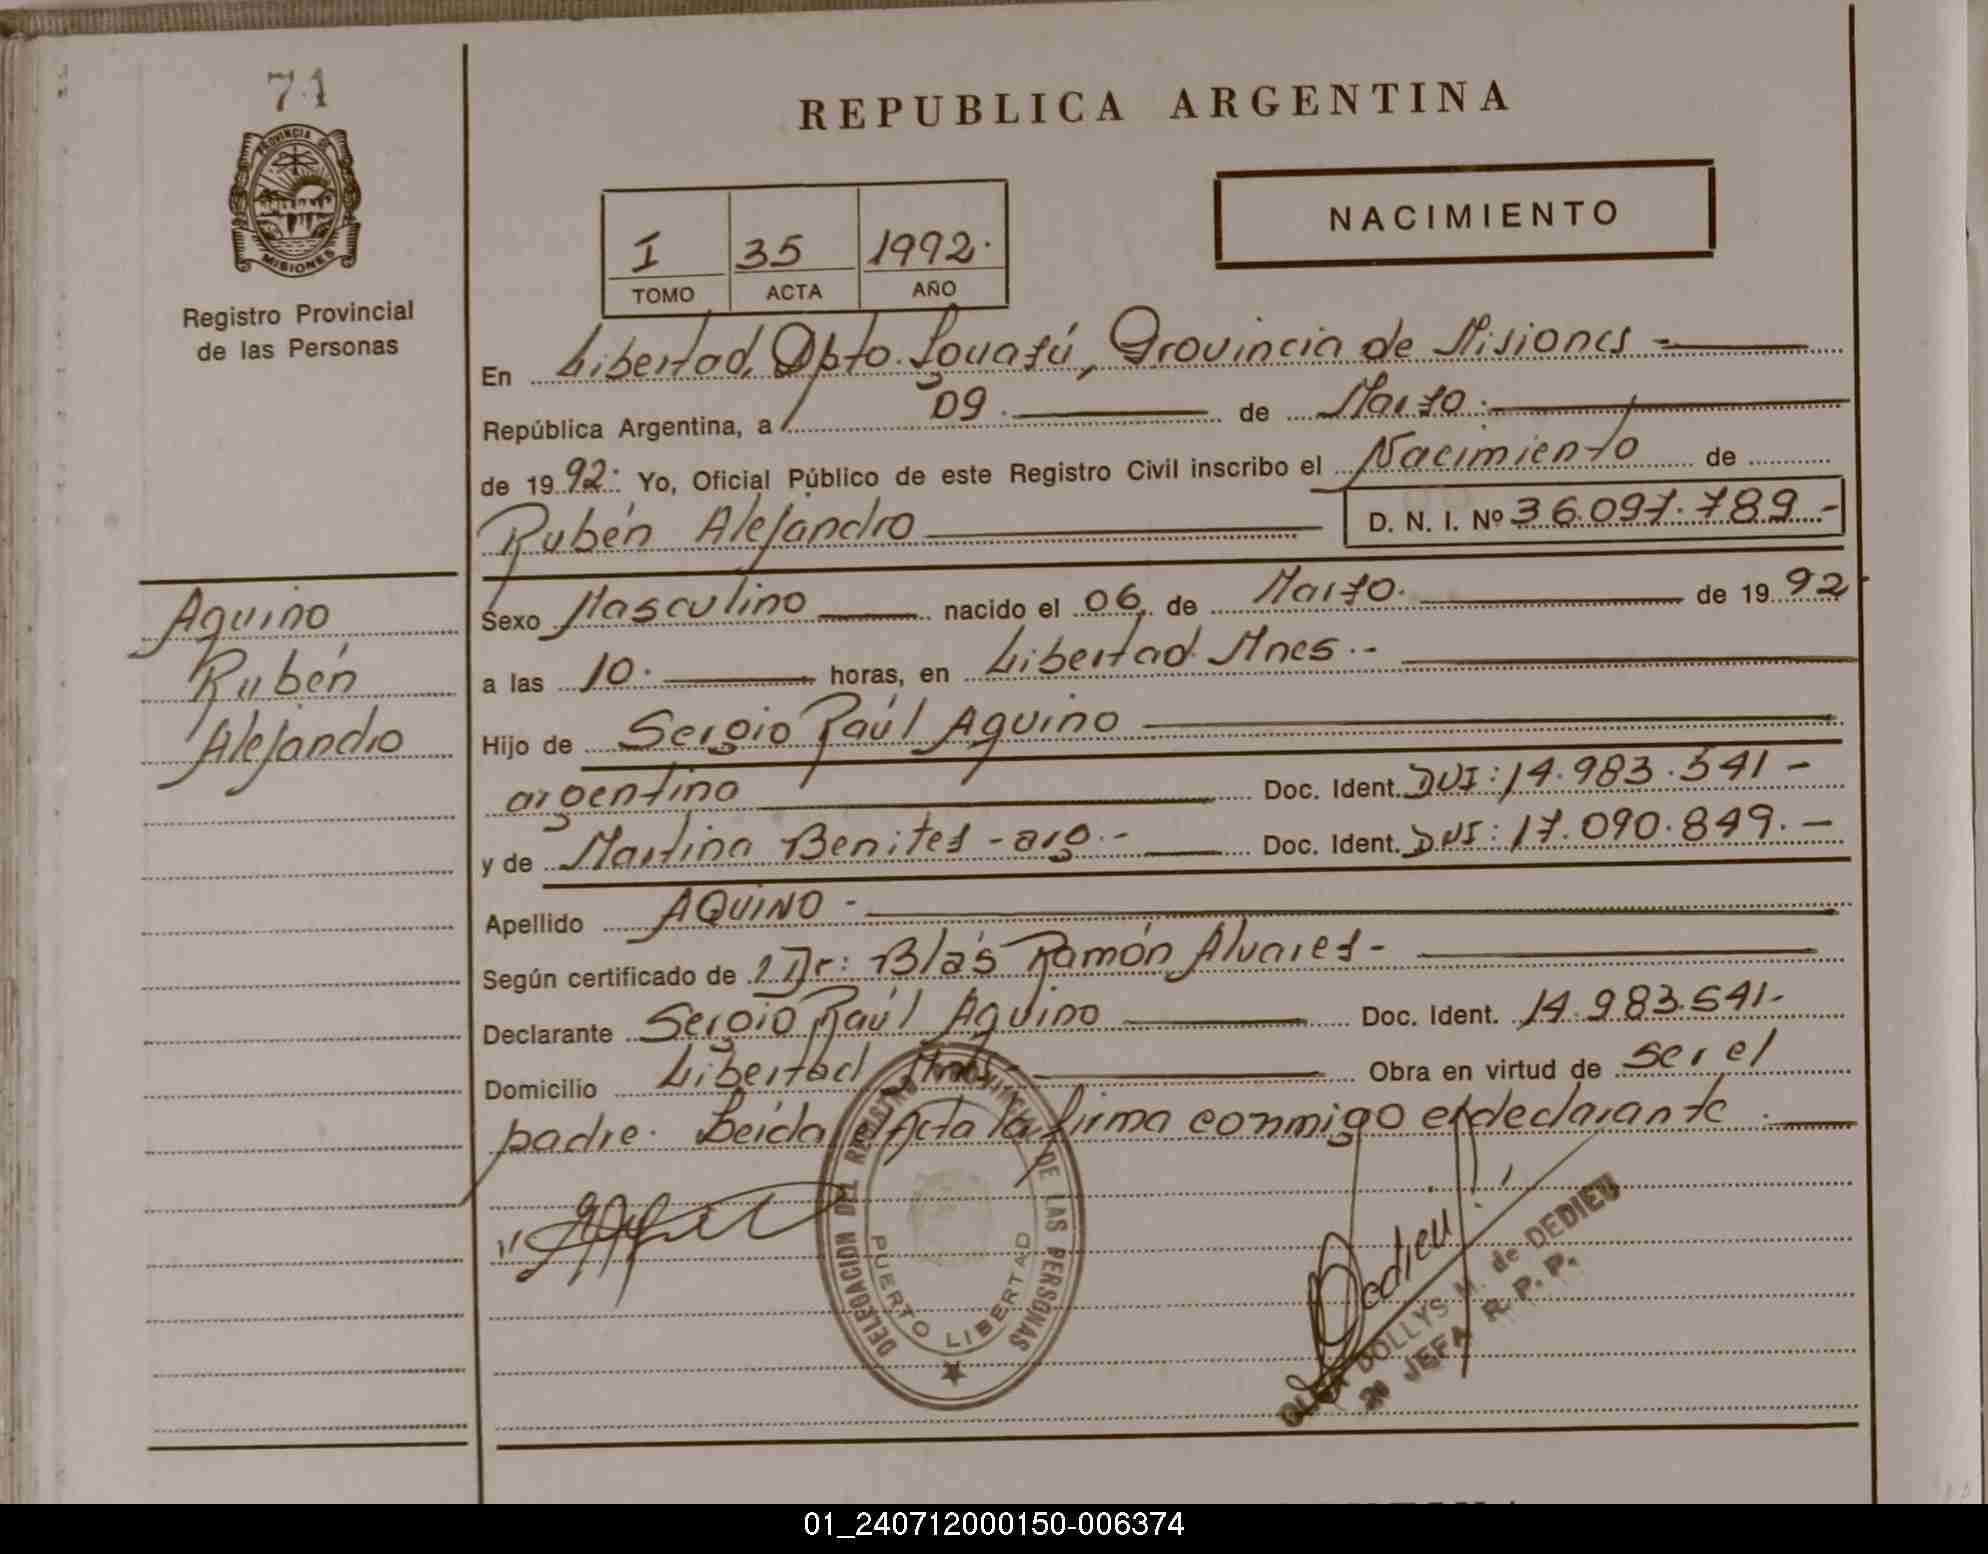 71
PROVINCIA DE
MISIONES
Registro Provincial
de las Personas
REPUBLICA ARGENTINA
NACIMIENTO
I 35 1992.
TOMO ACTA AÑO
En Libertad, Dpto. Iguazú, Provincia de Misiones
República Argentina, a 09. de Marzo.
de 1992. Yo, Oficial Público de este Registro Civil inscribo el Nacimiento de
Rubén Alejandro D. N. I. Nº 36.097.789.-
Aquino
Rubén
Alejandro
Sexo Masculino nacido el 06 de Marzo. de 1992
a las 10. horas, en Libertad Mnes.-
Hijo de Sergio Raúl Aquino
argentino Doc. Ident. DNI: 14.983.541-
y de Martina Benitez - arg.- Doc. Ident. DNI: 17.090.849.-
Apellido AQUINO -
Según certificado de Dr: Blás Ramón Alvarez-
Declarante Sergio Raúl Aquino Doc. Ident. 14.983.541-
Domicilio Libertad Mnes- Obra en virtud de ser el
padre. Leída el Acta la firma conmigo el declarante.
DELEGACION DEL REGISTRO PROVINCIAL DE LAS PERSONAS
PUERTO LIBERTAD
Dedieu
OLGA DOLLYS M. de DEDIEU
JEFA R. P. P.
01_240712000150-006374